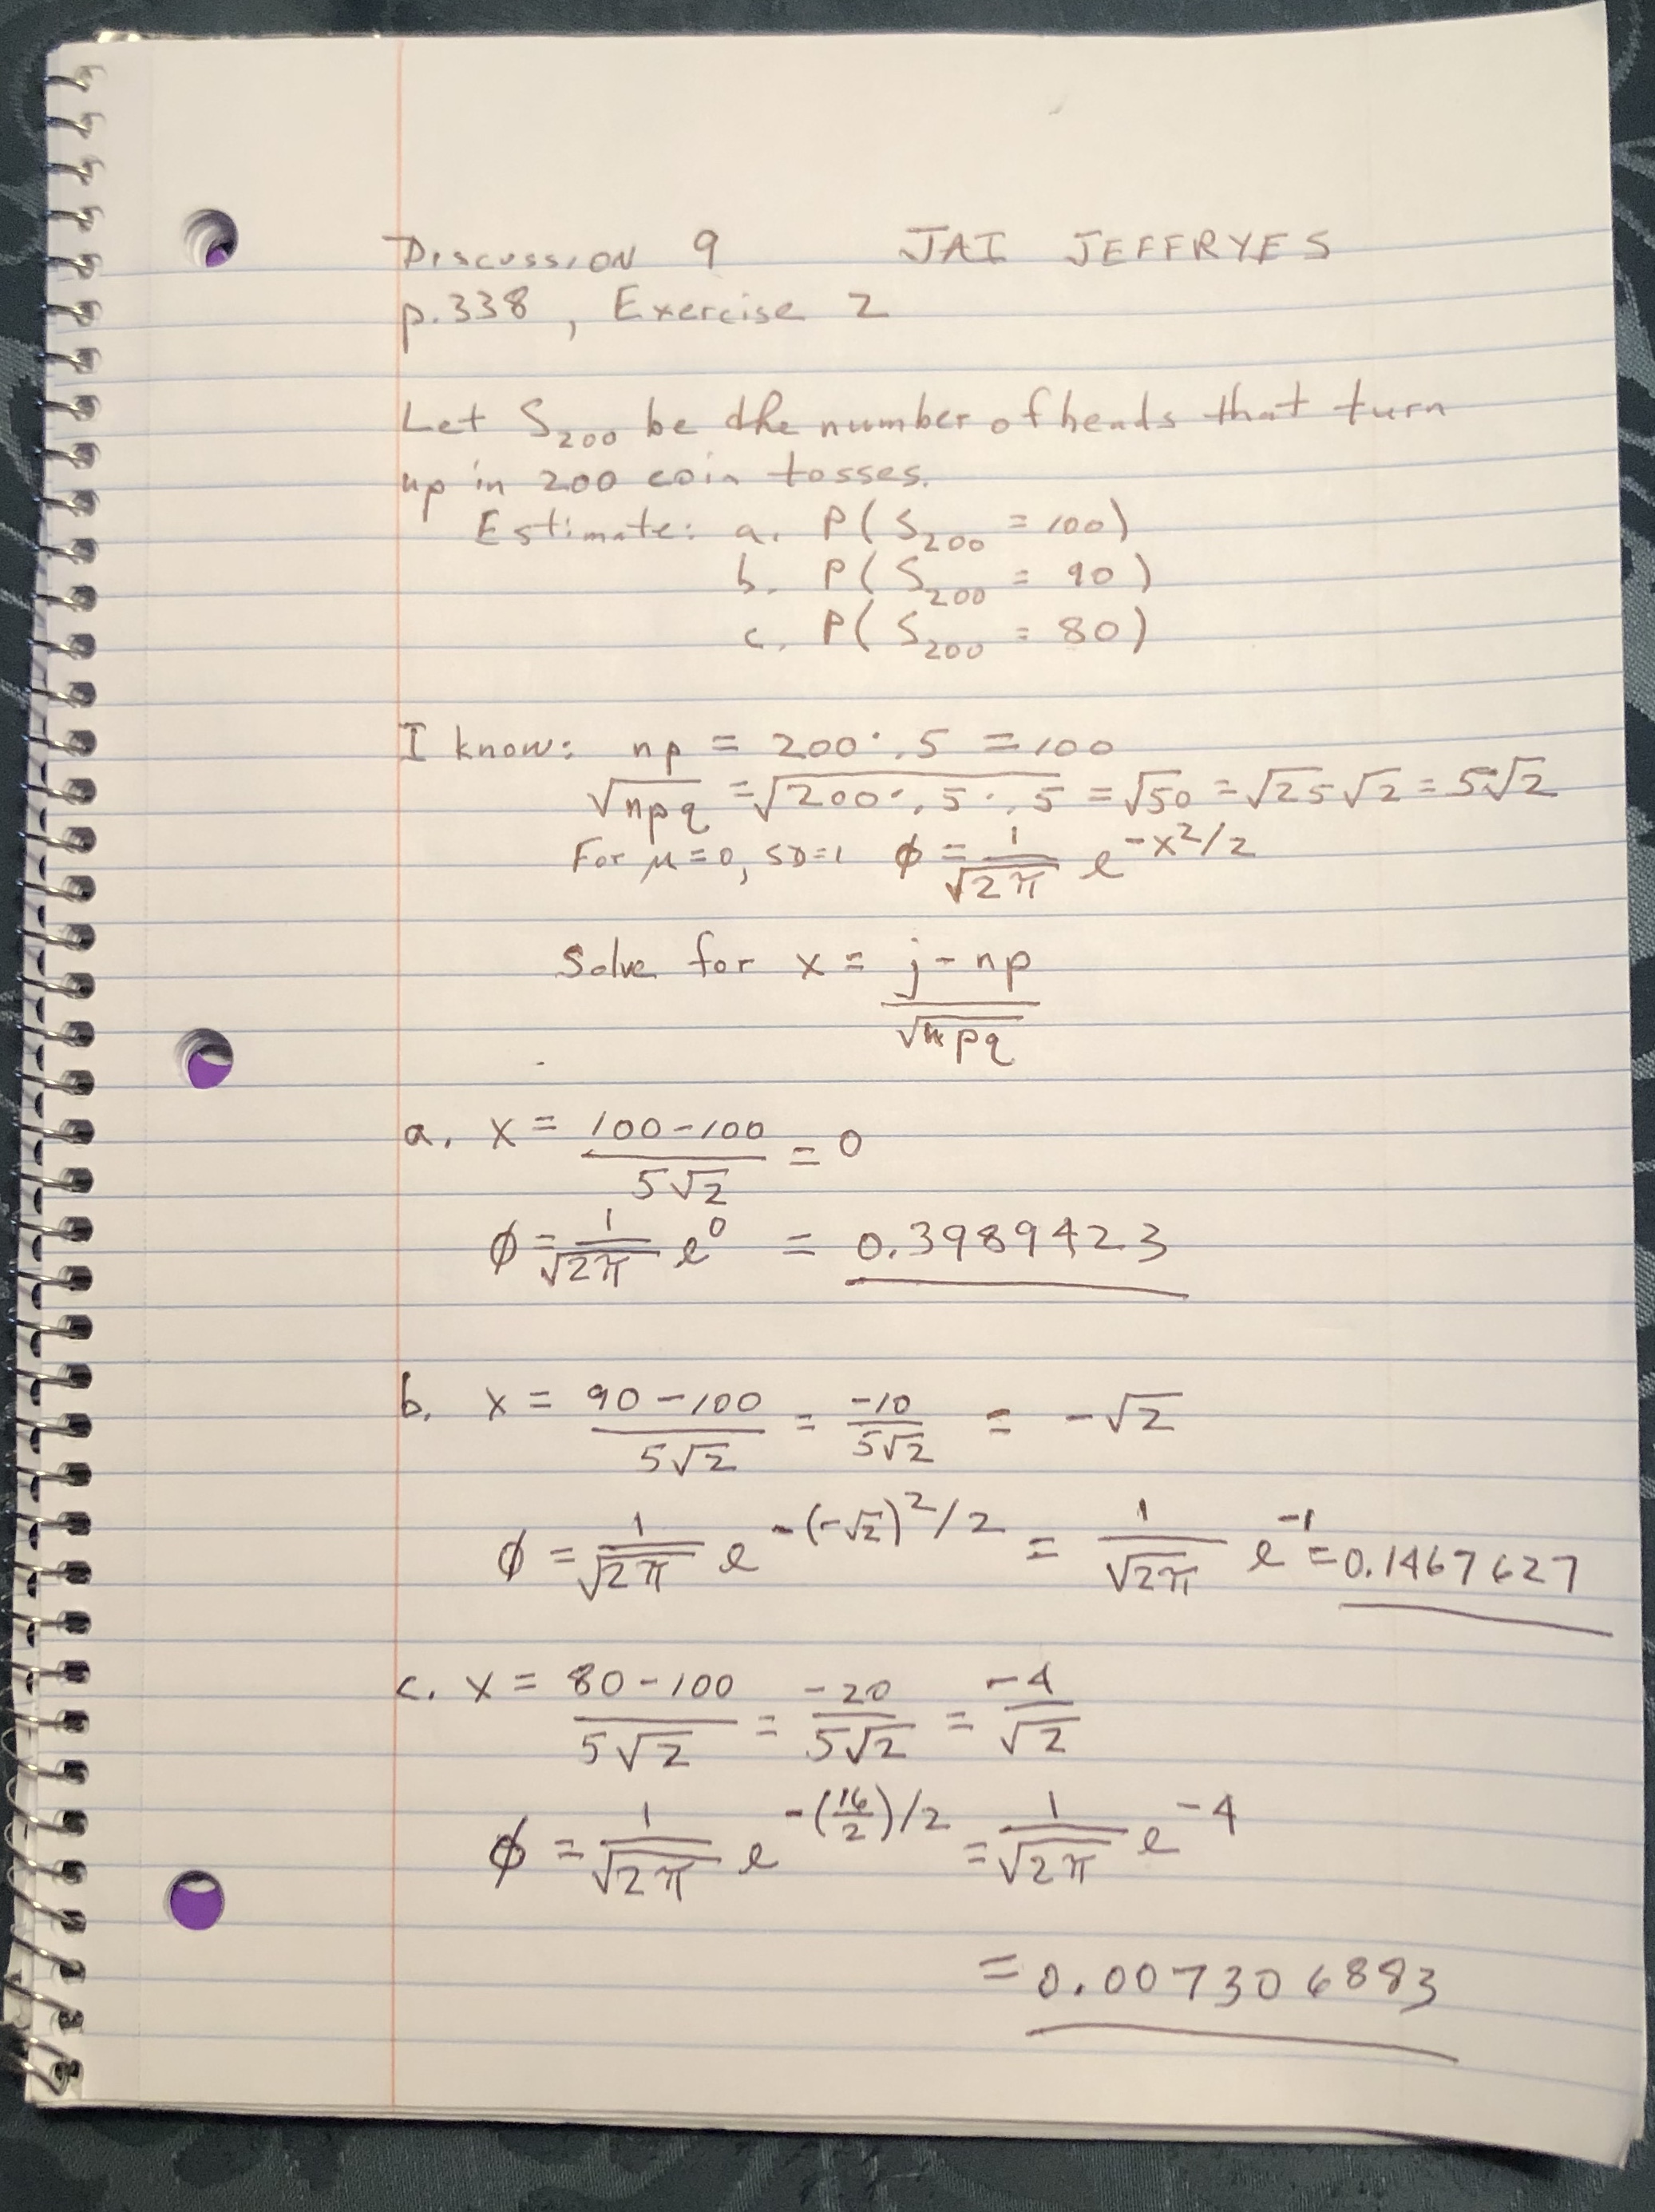 Discussion 9 JAI JEFFRYES
p.338, Exercise 2
Let S₂₀₀ be the number of heads that turn
up in 200 coin tosses.
Estimate: a. P(S₂₀₀ = 100)
b. P(S₂₀₀ = 90)
c. P(S₂₀₀ = 80)
I know: np = 200·.5 = 100
√(npq) = √(200·.5·.5) = √50 = √25√2 = 5√2
For μ=0, SD=1 ϕ = 1/√(2π) e^(-x²/2)
Solve for x = (j - np)/√(npq)
a. x = (100-100)/(5√2) = 0
ϕ = 1/√(2π) e⁰ = 0.3989423
b. x = (90-100)/(5√2) = -10/(5√2) = -√2
ϕ = 1/√(2π) e^(-(-√2)²/2) = 1/√(2π) e⁻¹ = 0.1467627
c. x = (80-100)/(5√2) = -20/(5√2) = -4/√2
ϕ = 1/√(2π) e^(-(16/2)/2) = 1/√(2π) e⁻⁴
= 0.007306883